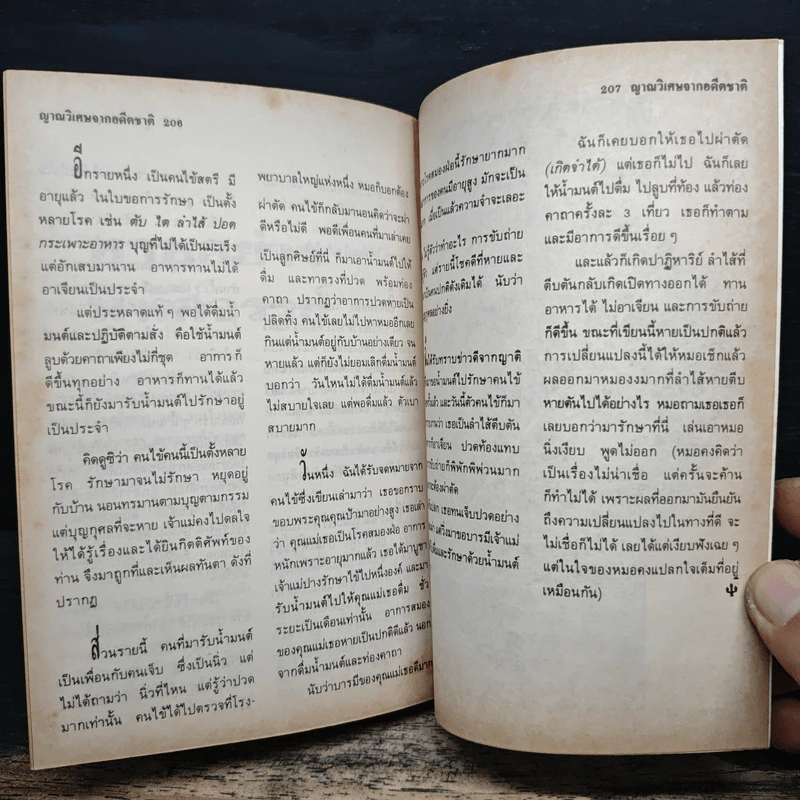 ญาณวิเศษจากอดีตชาติ 206
อีกรายหนึ่ง เป็นคนไข้สตรี มี
อายุแล้ว ในใบขอการรักษา เป็นตั้ง
หลายโรค เช่น ตับ ไต ลำไส้ ปอด
กระเพาะอาหาร บุญที่ไม่ได้เป็นมะเร็ง
แต่อักเสบมานาน อาหารทานไม่ได้
อาเจียนเป็นประจำ
แต่ประหลาดแท้ ๆ พอได้ดื่มน้ำ
มนต์และปฏิบัติตามสั่ง คือใช้น้ำมนต์
ลูบด้วยคาถาเพียงไม่กี่ชุด อาการก็
ดีขึ้นทุกอย่าง อาหารก็ทานได้แล้ว
ขณะนี้ก็ยังมารับน้ำมนต์ไปรักษาอยู่
เป็นประจำ
คิดดูซิว่า คนไข้คนนี้เป็นตั้งหลาย
โรค รักษามาจนไม่รักษา หยุดอยู่
กับบ้าน นอนทรมานตามบุญตามกรรม
แต่บุญกุศลที่จะหาย เจ้าแม่คงไปดลใจ
ให้ได้รู้เรื่องและได้ยินกิตติศัพท์ของ
ท่าน จึงมาถูกที่และเห็นผลทันตา ดังที่
ปรากฏ
ส่วนรายนี้ คนที่มารับน้ำมนต์
เป็นเพื่อนกับคนเจ็บ ซึ่งเป็นนิ่ว แต่
ไม่ได้ถามว่า นิ่วที่ไหน แต่รู้ว่าปวด
มากเท่านั้น คนไข้ได้ไปตรวจที่โรง-
พยาบาลใหญ่แห่งหนึ่ง หมอก็บอกต้อง
ผ่าตัด คนไข้ก็กลับมานอนคิดว่าจะผ่า
ดีหรือไม่ดี พอดีเพื่อนคนที่มาเล่าเคย
เป็นลูกศิษย์ที่นี่ ก็มาเอาน้ำมนต์ไปให้
ดื่ม และทาตรงที่ปวด พร้อมท่อง
คาถา ปรากฏว่าอาการปวดหายเป็น
ปลิดทิ้ง คนไข้เลยไม่ไปหาหมออีกเลย
กินแต่น้ำมนต์อยู่กับบ้านอย่างเดียว จน
หายแล้ว แต่ก็ยังไม่ยอมเลิกดื่มน้ำมนต์
บอกว่า วันไหนไม่ได้ดื่มน้ำมนต์แล้ว
ไม่สบายใจเลย แต่พอดื่มแล้ว ตัวเบา
สบายมาก
วันหนึ่ง ฉันได้รับจดหมายจาก
คนไข้ซึ่งเขียนเล่ามาว่า เธอขอกราบ
ขอบพระคุณคุณป้ามาอย่างสูง เธอเล่า
ว่า คุณแม่เธอเป็นโรคสมองฝ่อ อาการ
หนักเพราะอายุมากแล้ว เธอได้มาบูชา
เจ้าแม่ปางรักษาไข้ไปหนึ่งองค์ และมา
รับน้ำมนต์ไปให้คุณแม่เธอดื่ม ชั่ว
ระยะเป็นเดือนเท่านั้น อาการสมอง
ของคุณแม่เธอหายเป็นปกติดีแล้ว นอก
จากดื่มน้ำมนต์และท่องคาถา
นับว่าบารมีของคุณแม่เธอดีมาก
207 ญาณวิเศษจากอดีตชาติ
โรคสมองฝ่อนี้รักษายากมาก
การของคนมีอายุสูง มักจะเป็น
เมื่อเป็นแล้วความจำจะเลอะ
รู้ตัวว่าทำอะไร การขับถ่าย
แต่รายนี้โชคดีที่หายและ
เป็นคนปกติดังเดิมได้ นับว่า
อย่างยิ่ง
ได้รับทราบข่าวดีจากญาติ
มาขอน้ำมนต์ไปรักษาคนไข้
แล้ว และวันนี้ตัวคนไข้ก็มา
ว่า เธอเป็นลำไส้ตีบตัน
อาเจียน ปวดท้องแทบ
ขับถ่ายก็พิพักพิพ่วนมาก
ผ่าตัด
เธอทนเจ็บปวดอย่าง
แล้วิ่งมาขอบารมีเจ้าแม่
และรักษาด้วยน้ำมนต์
ฉันก็เคยบอกให้เธอไปผ่าตัด
(เกิดจำได้) แต่เธอก็ไม่ไป ฉันก็เลย
ให้น้ำมนต์ไปดื่ม ไปลูบที่ท้อง แล้วท่อง
คาถาครั้งละ 3 เที่ยว เธอก็ทำตาม
และมีอาการดีขึ้นเรื่อย ๆ
และแล้วก็เกิดปาฏิหาริย์ ลำไส้ที่
ตีบตันกลับเกิดเปิดทางออกได้ ทาน
อาหารได้ ไม่อาเจียน และการขับถ่าย
ก็ดีขึ้น ขณะที่เขียนนี้หายเป็นปกติแล้ว
การเปลี่ยนแปลงนี้ได้ให้หมอเช็กแล้ว
ผลออกมาหมองงมากที่ลำไส้หายตีบ
หายตันไปได้อย่างไร หมอถามเธอเธอก็
เลยบอกว่ามารักษาที่นี่ เล่นเอาหมอ
นิ่งเงียบ พูดไม่ออก (หมอคงคิดว่า
เป็นเรื่องไม่น่าเชื่อ แต่ครั้นจะค้าน
ก็ทำไม่ได้ เพราะผลที่ออกมามันยืนยัน
ถึงความเปลี่ยนแปลงไปในทางที่ดี จะ
ไม่เชื่อก็ไม่ได้ เลยได้แต่เงียบฟังเฉย ๆ
แต่ในใจของหมอคงแปลกใจเต็มที่อยู่
เหมือนกัน)